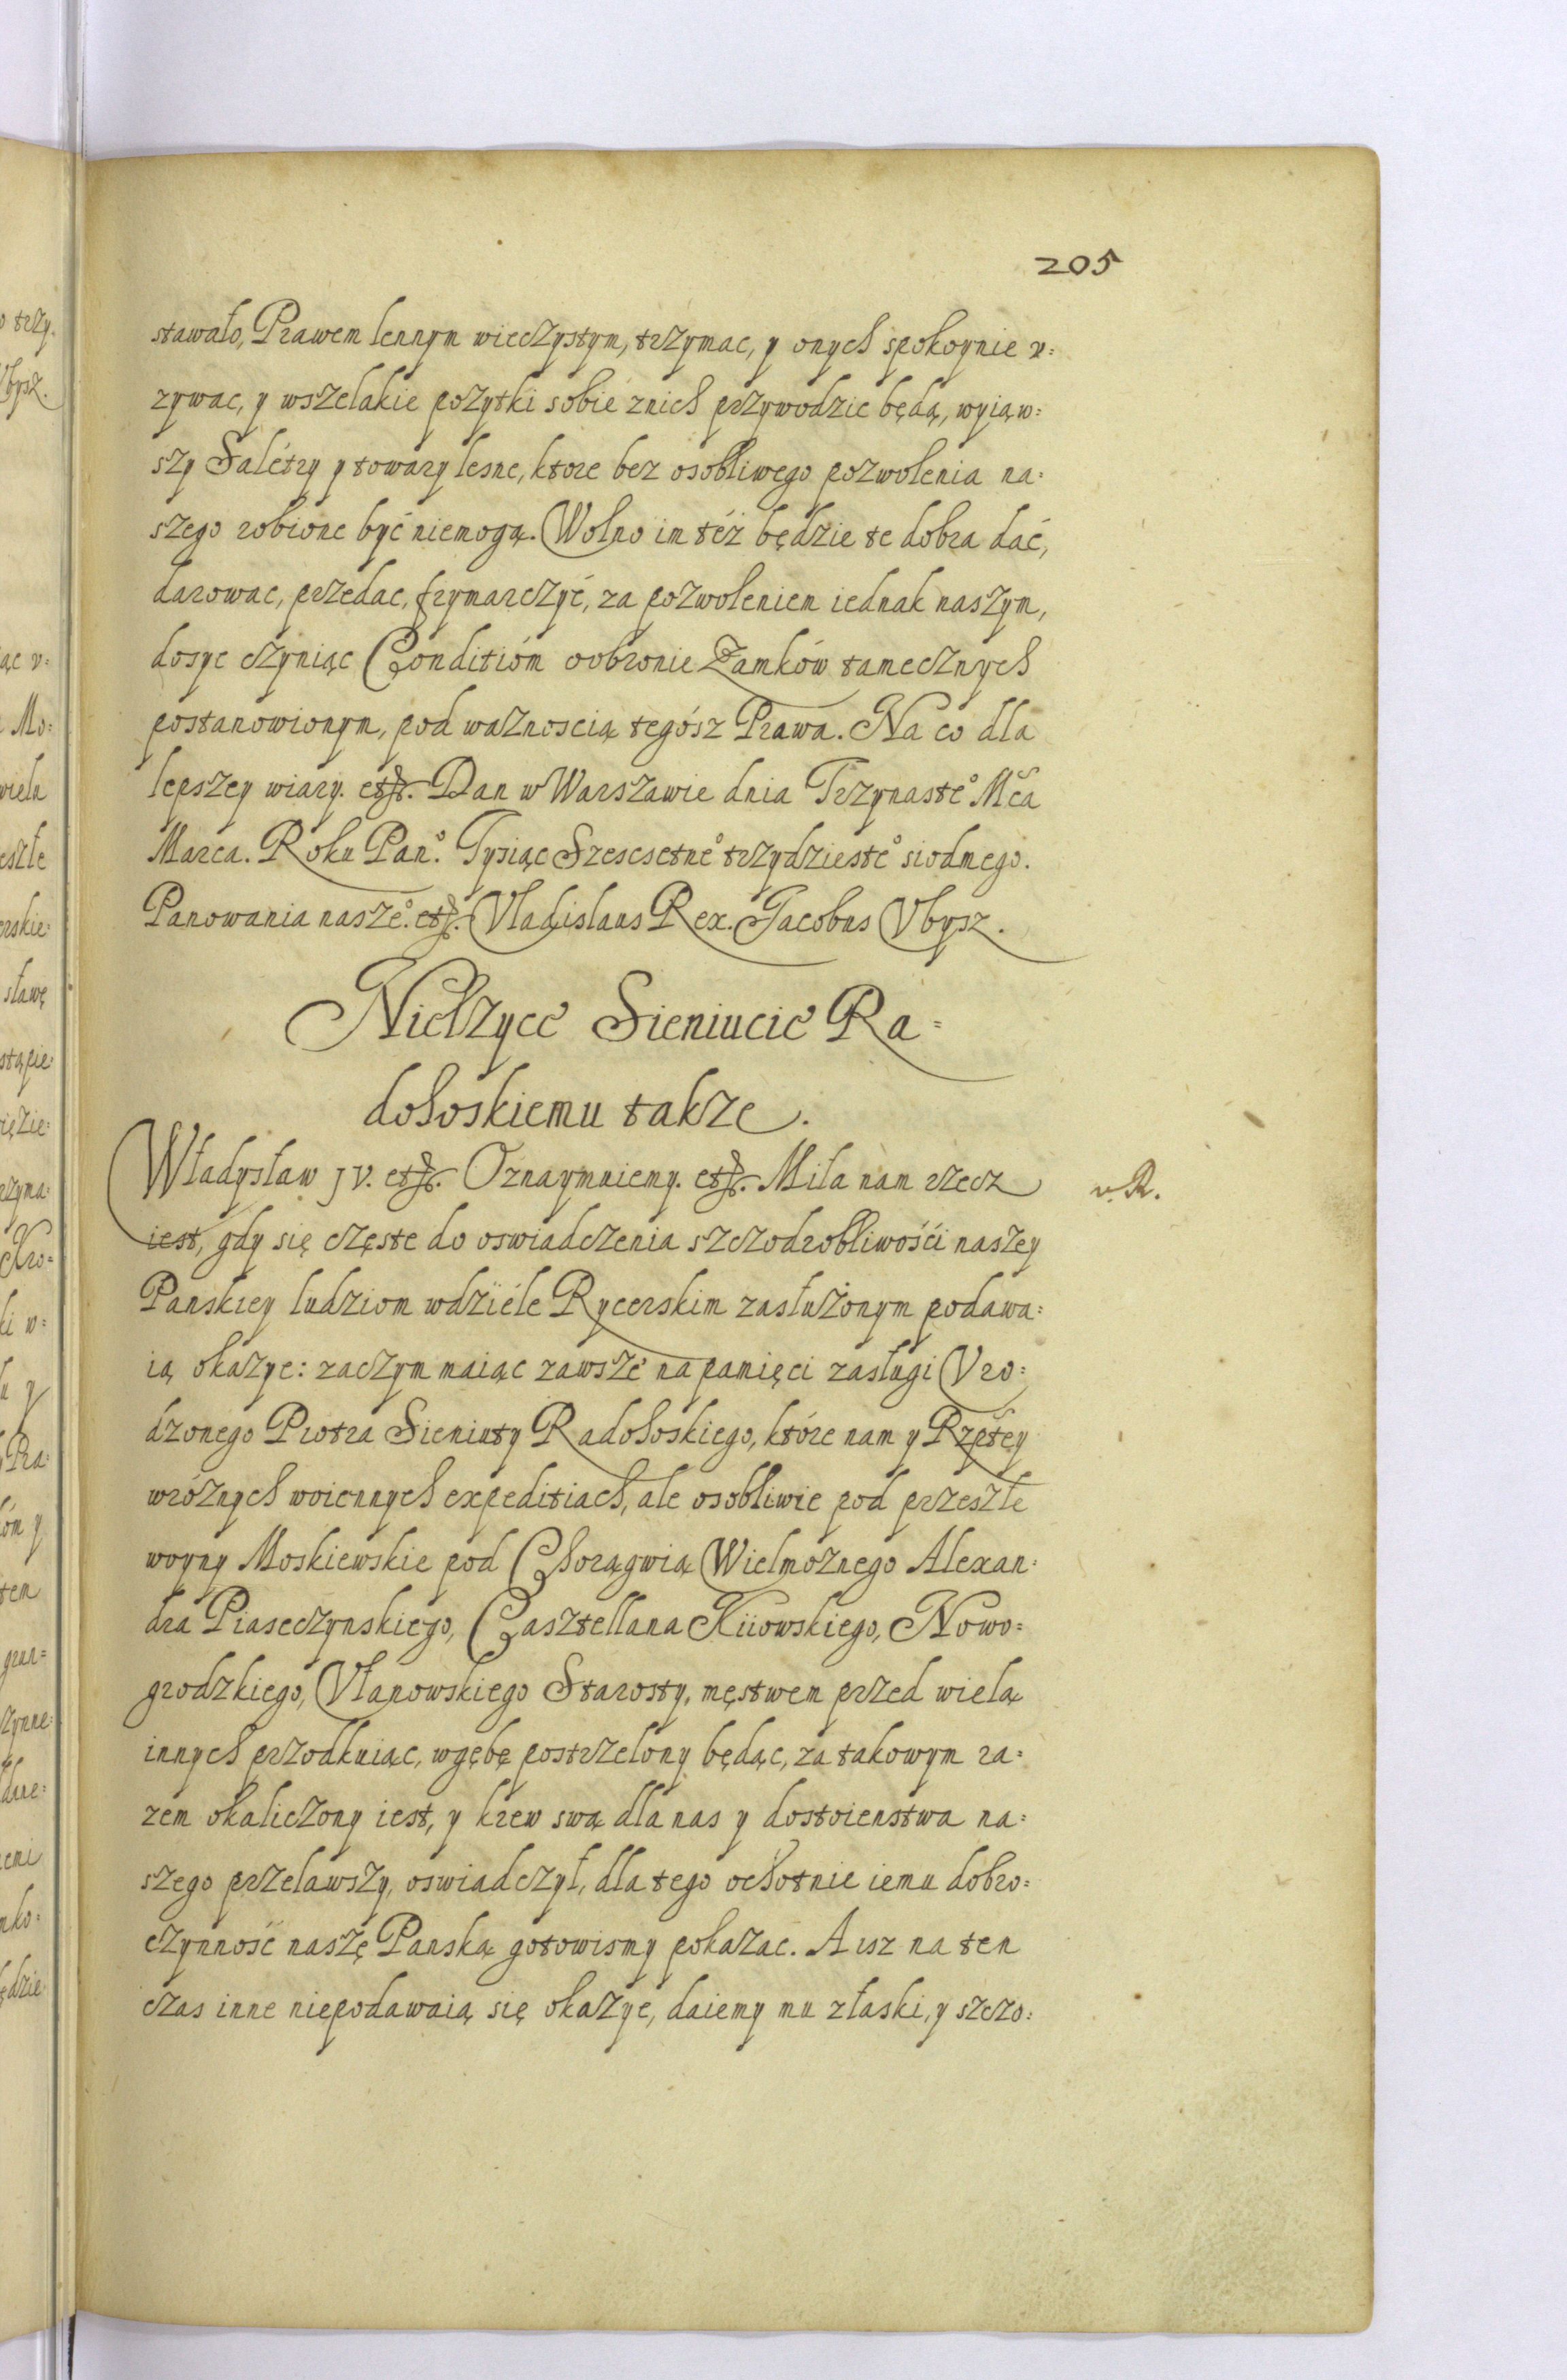 205
stawało, Prawem lennym wieczystym, trzymac, y onych spokoynie v=
zywac, y wszelakie pozytki sobie znich przywodzic będą, wyiąw=
szy Salétry y towary lesne, ktore bez osobliwego pozwolenia na=
szego robione być niemogą. Wolno im téż będzie te dobra dać,
darowac, przedac, frymarczyć, za pozwoleniem iednak naszym,
dosyc czyniąc Conditióm oobronie Zamków tamecznych
postanowionym, pod waznoscią tegósz Prawa. Na co dla
lepszey wiary. etc. Dan w Warszawie dnia Trzynaste° Mca
Marca. Roku Pan°. Tysiąc Szescsetne° trzydzieste° siodmego.
Panowania nasze°. etc. Vladislaus Rex. Jacobus Vbysz.
Niełzyce Sieniucie Ra=
dohoskiemu takze.
Władysław JV. etc. Oznaymuiemy. etc. Miła nam rzecz
v. R.
iest, gdy się częste do oswiadczenia szczodrobliwośći naszey
Panskiey ludziom wdziéle Rycerskim zasłużonym podawa=
ią okazye: zaczym maiąc zawsze na pamięci zasługi Vro=
dzonego Piotra Sieniuty Radohoskiego, któré nam y Rzptey
wróznych woiennych expeditiach, ale osobliwie pod przeszłe
woyny Moskiewskie pod Chorągwią Wielmoznego Alexan=
dra Piaseczynskiego, Casztellana Kiiowskiego, Nowo=
grodzkiego, Vłanowskiego Starosty, męstwem przed wielą
innych przodkuiąc, wgębę postrzelony będąc, za takowym ra=
zem okaliczony iest, y krew swą dla nas y dostoienstwa na=
szego przelawszy, oswiadczył, dla tego ochotnie iemu dobro=
czynność naszę Panską gotowismy pokazac. A isz na ten
czas inne niepodawaią się okazye, daiemy mu złaski, y szczo=